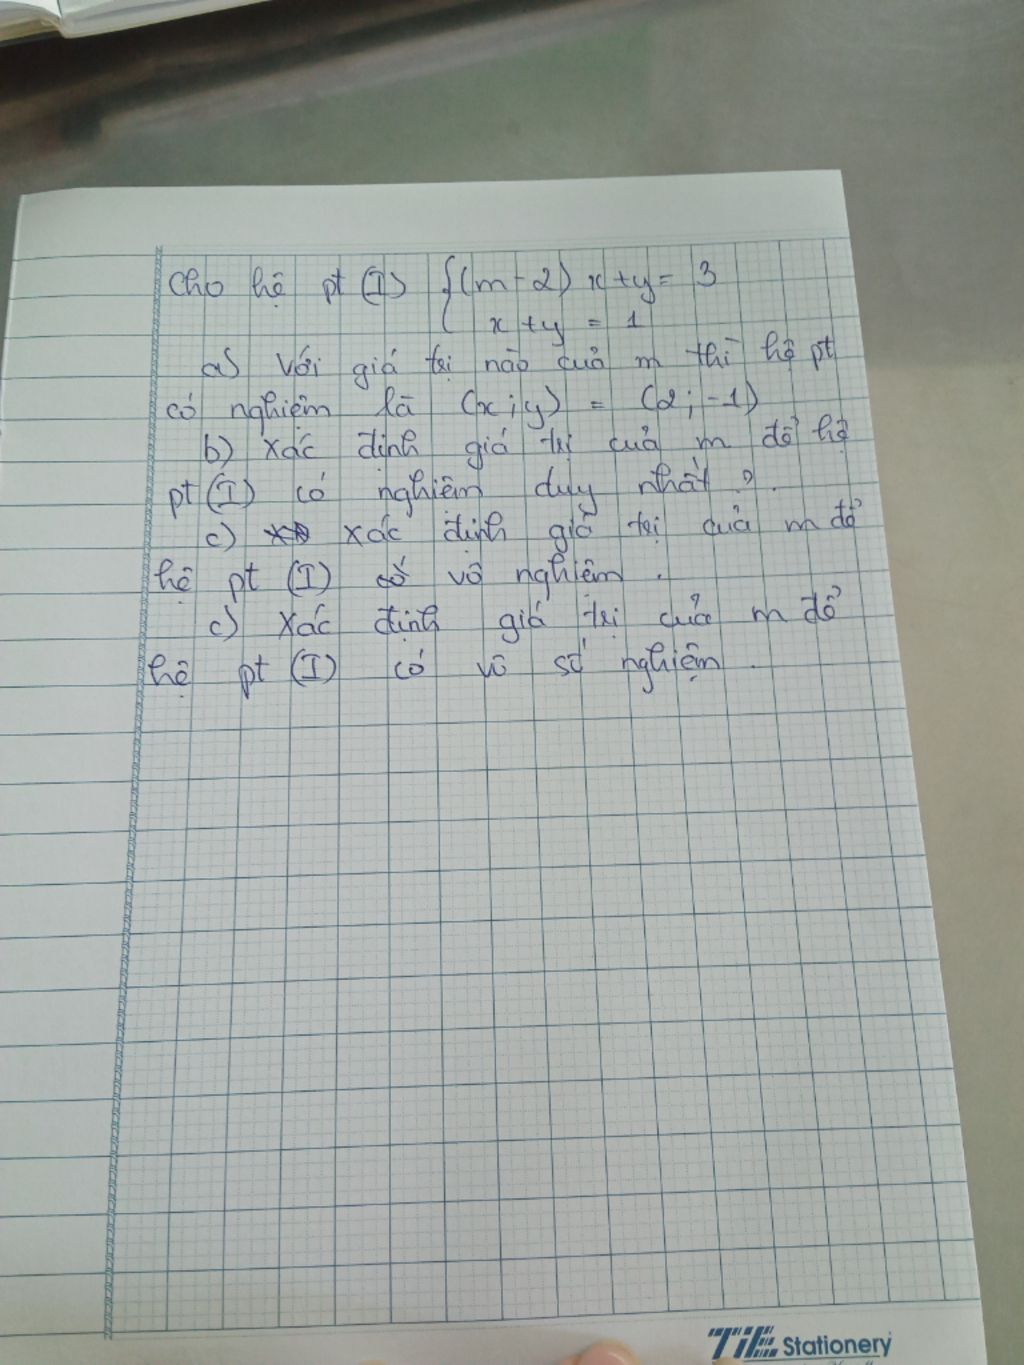 Cho hệ pt (I) {(m-2) x+y = 3
x+y = 1
a) Với giá trị nào của m thì hệ pt
có nghiệm là (x;y) = (2;-1)
b) Xác định giá trị của m để hệ
pt (I) có nghiệm duy nhất ?.
c) xác định giá trị của m để
hệ pt (I) có vô nghiệm .
c) Xác định giá trị của m để
hệ pt (I) có vô số nghiệm .
TiE Stationery